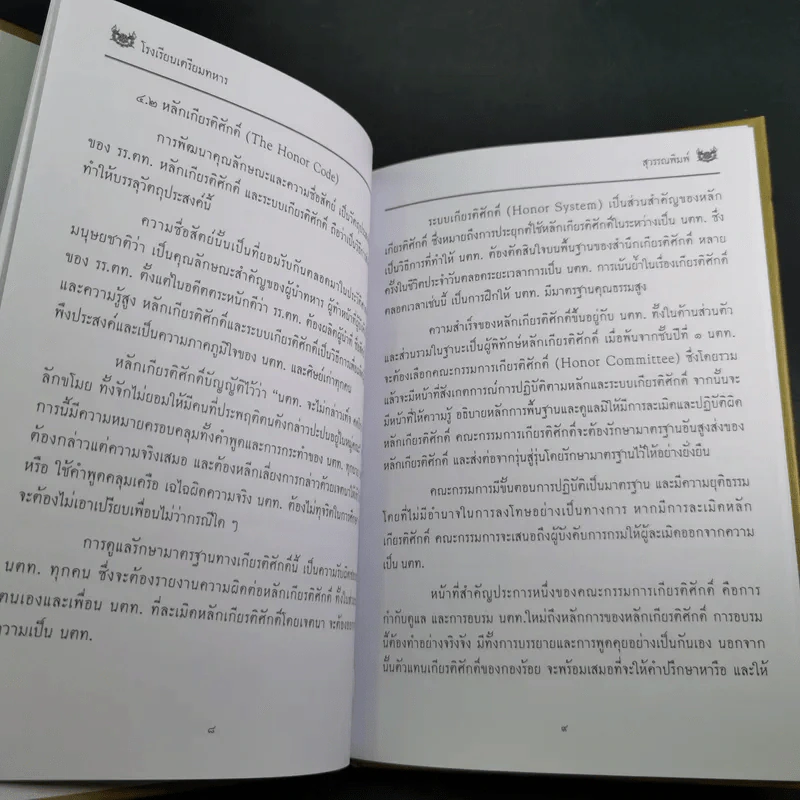 โรงเรียนเตรียมทหาร
๔.๒ หลักเกียรติศักดิ์ (The Honor Code)
การพัฒนาคุณลักษณะและความซื่อสัตย์ เป็นวัตถุประสงค์
ของ รร.ตท. หลักเกียรติศักดิ์ และระบบเกียรติศักดิ์ ถือว่าเป็นวิธีการ
ทำให้บรรลุวัตถุประสงค์นี้
ความซื่อสัตย์นั้นเป็นที่ยอมรับกันตลอดมาในประวัติ
มนุษยชาติว่า เป็นคุณลักษณะสำคัญของผู้นำทหาร ผู้ทำหน้าที่
ของ รร.ตท. ตั้งแต่ในอดีตตระหนักดีว่า รร.ตท. ต้องผลิตผู้นำที่
และความรู้สูง หลักเกียรติศักดิ์และระบบเกียรติศักดิ์เป็นวิธีการ
พึงประสงค์และเป็นความภาคภูมิใจของ นตท. และศิษย์เก่าทุกคน
หลักเกียรติศักดิ์บัญญัติไว้ว่า “นตท. จะไม่กล่าวเท็จ
ลักขโมย ทั้งจักไม่ยอมให้มีคนที่ประพฤติตนดังกล่าวปะปนอยู่ในหมู่
การนี้มีความหมายครอบคลุมทั้งคำพูดและการกระทำของ นตท.
ต้องกล่าวแต่ความจริงเสมอ และต้องหลีกเลี่ยงการกล่าวด้วยเจตนา
หรือ ใช้คำพูดคลุมเครือ เฉไฉผิดความจริง นตท. ต้องไม่ทุจริตในการ
จะต้องไม่เอาเปรียบเพื่อนไม่ว่ากรณีใด ๆ
การดูแลรักษามาตรฐานทางเกียรติศักดิ์นี้ เป็นความรับผิด
นตท. ทุกคน ซึ่งจะต้องรายงานความผิดต่อหลักเกียรติศักดิ์
ตนเองและเพื่อน นตท. ที่ละเมิดหลักเกียรติศักดิ์โดยเจตนา จะต้อง
ความเป็น นตท.
๘
สุวรรณพิมพ์
ระบบเกียรติศักดิ์ (Honor System) เป็นส่วนสำคัญของหลัก
เกียรติศักดิ์ ซึ่งหมายถึงการประยุกต์ใช้หลักเกียรติศักดิ์ในระหว่างเป็น นตท. ซึ่ง
เป็นวิธีการที่ทำให้ นตท. ต้องตัดสินใจบนพื้นฐานของสำนึกเกียรติศักดิ์ หลาย
ครั้งในชีวิตประจำวันตลอดระยะเวลาการเป็น นตท. การเน้นย้ำในเรื่องเกียรติศักดิ์
ตลอดเวลาเช่นนี้ เป็นการฝึกให้ นตท. มีมาตรฐานคุณธรรมสูง
ความสำเร็จของหลักเกียรติศักดิ์ขึ้นอยู่กับ นตท. ทั้งในด้านส่วนตัว
และส่วนรวมในฐานะเป็นผู้พิทักษ์หลักเกียรติศักดิ์ เมื่อพ้นจากชั้นปีที่ ๑ นตท.
จะต้องเลือกคณะกรรมการเกียรติศักดิ์ (Honor Committee) ซึ่งโดยรวม
แล้วจะมีหน้าที่สังเกตการณ์การปฏิบัติตามหลักและระบบเกียรติศักดิ์ จากนั้นจะ
มีหน้าที่ให้ความรู้ อธิบายหลักการพื้นฐานและดูแลมิให้มีการละเมิดและปฏิบัติผิด
หลักเกียรติศักดิ์ คณะกรรมการเกียรติศักดิ์จะต้องรักษามาตรฐานอันสูงส่งของ
หลักเกียรติศักดิ์ และส่งต่อจากรุ่นสู่รุ่นโดยรักษามาตรฐานไว้ให้อย่างยั่งยืน
คณะกรรมการมีขั้นตอนการปฏิบัติเป็นมาตรฐาน และมีความยุติธรรม
โดยที่ไม่มีอำนาจในการลงโทษอย่างเป็นทางการ หากมีการละเมิดหลัก
เกียรติศักดิ์ คณะกรรมการจะเสนอถึงผู้บังคับการกรมให้ผู้ละเมิดออกจากความ
เป็น นตท.
หน้าที่สำคัญประการหนึ่งของคณะกรรมการเกียรติศักดิ์ คือการ
กำกับดูแล และการอบรม นตท.ใหม่ถึงหลักการของหลักเกียรติศักดิ์ การอบรม
นี้ต้องทำอย่างจริงจัง มีทั้งการบรรยายและการพูดคุยอย่างเป็นกันเอง นอกจาก
นั้นตัวแทนเกียรติศักดิ์ของกองร้อย จะพร้อมเสมอที่จะให้คำปรึกษาหารือ และให้
๙